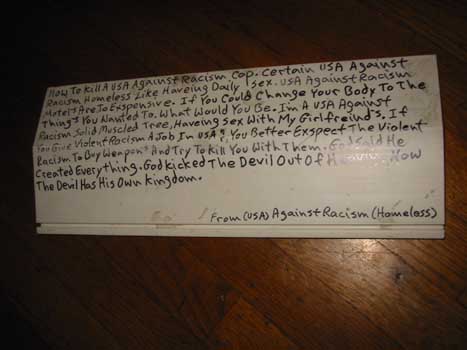 How To Kill A USA Against Racism Cop. Certain USA Against
Racism Homeless Like Haveing Daily Sex. USA Against Racism
Motels Are To Exspensive. If You Could Change Your Body To The
Things You Wanted To. What Would You Be. Im A USA Against
Racism Solid Muscled Tree, Haveing Sex With My Girlfreind's. If
You Give Violent Racism A Job In USA You Better Exspect The Violent
Racism To Buy Weapons And Try To Kill You With Them. God Said He
Created Everything. God Kicked The Devil Out Of Now
The Devil Has His Own Kingdom.
From (USA) Against Racism (Homeless)